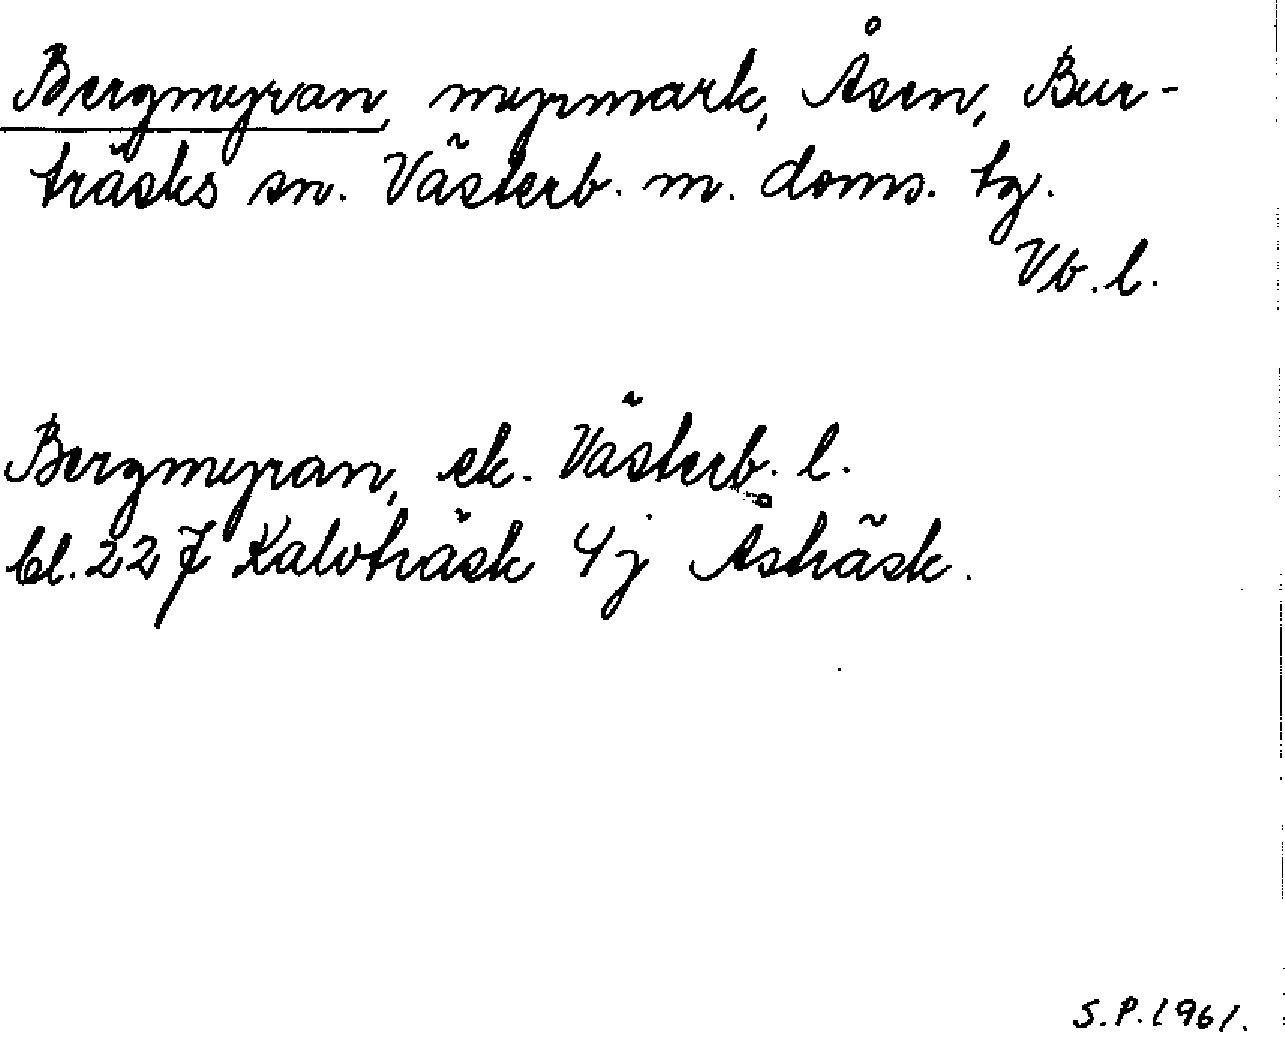 Bergmyran, myrmark, Åsen, Bur-
träsks sn. Västerb. m. doms. tg.
Vb. l.
Bergmyran, ek. Västerb. l.
bl. 22 J Kalvträsk 4j Åsträsk.
S.P. 1961.